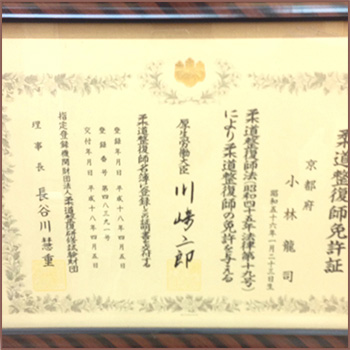 柔道整復師免許証
京都府
小林龍司
昭和五十六年一月二十三日生
柔道整復師法(昭和四十五年法律第十九号)
により柔道整復師の免許を与える
厚生労働大臣 川崎二郎
柔道整復師名簿に登録した証明書を交付する
登録年月日 平成十八年四月五日
登録番号 第四八三九一号
交付年月日 平成十八年四月五日
指定登録機関財団法人柔道整復研修試験財団
理事長 長谷川慧重